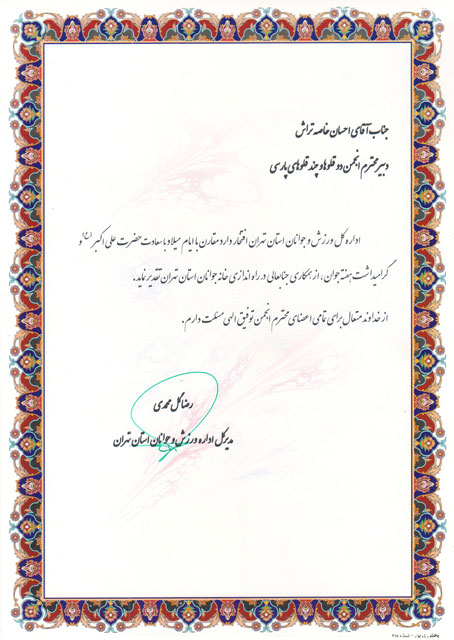 جناب آقای احسان خاصه تراش
دبیر محترم انجمن دوقلوها و چند قلوهای پارسی
اداره کل ورزش و جوانان استان تهران افتخار دارد مقارن با ایام میلاد با سعادت حضرت علی اکبر (ع) و
گرامیداشت هفته جوان، از همکاری جنابعالی در راه اندازی خانه جوانان استان تهران تقدیر نماید.
از خداوند متعال برای تمامی اعضای محترم انجمن توفیق الهی مسئلت دارم.
رضا گل محمدی
مدیرکل اداره ورزش و جوانان استان تهران